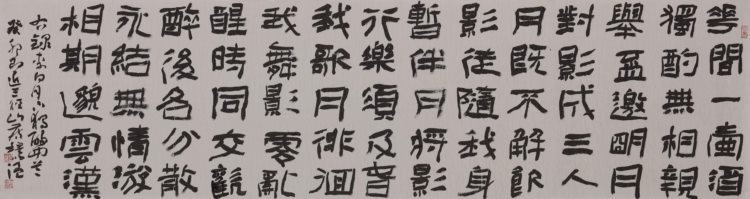 花間一壺酒
獨酌無相親
舉盃邀明月
對影成三人
月既不解飲
影徒隨我身
暫伴月將影
行樂須及春
我歌月徘徊
我舞影零亂
醒時同交歡
醉後各分散
永結無情遊
相期邈雲漢
右錄李白月下獨酌
癸卯